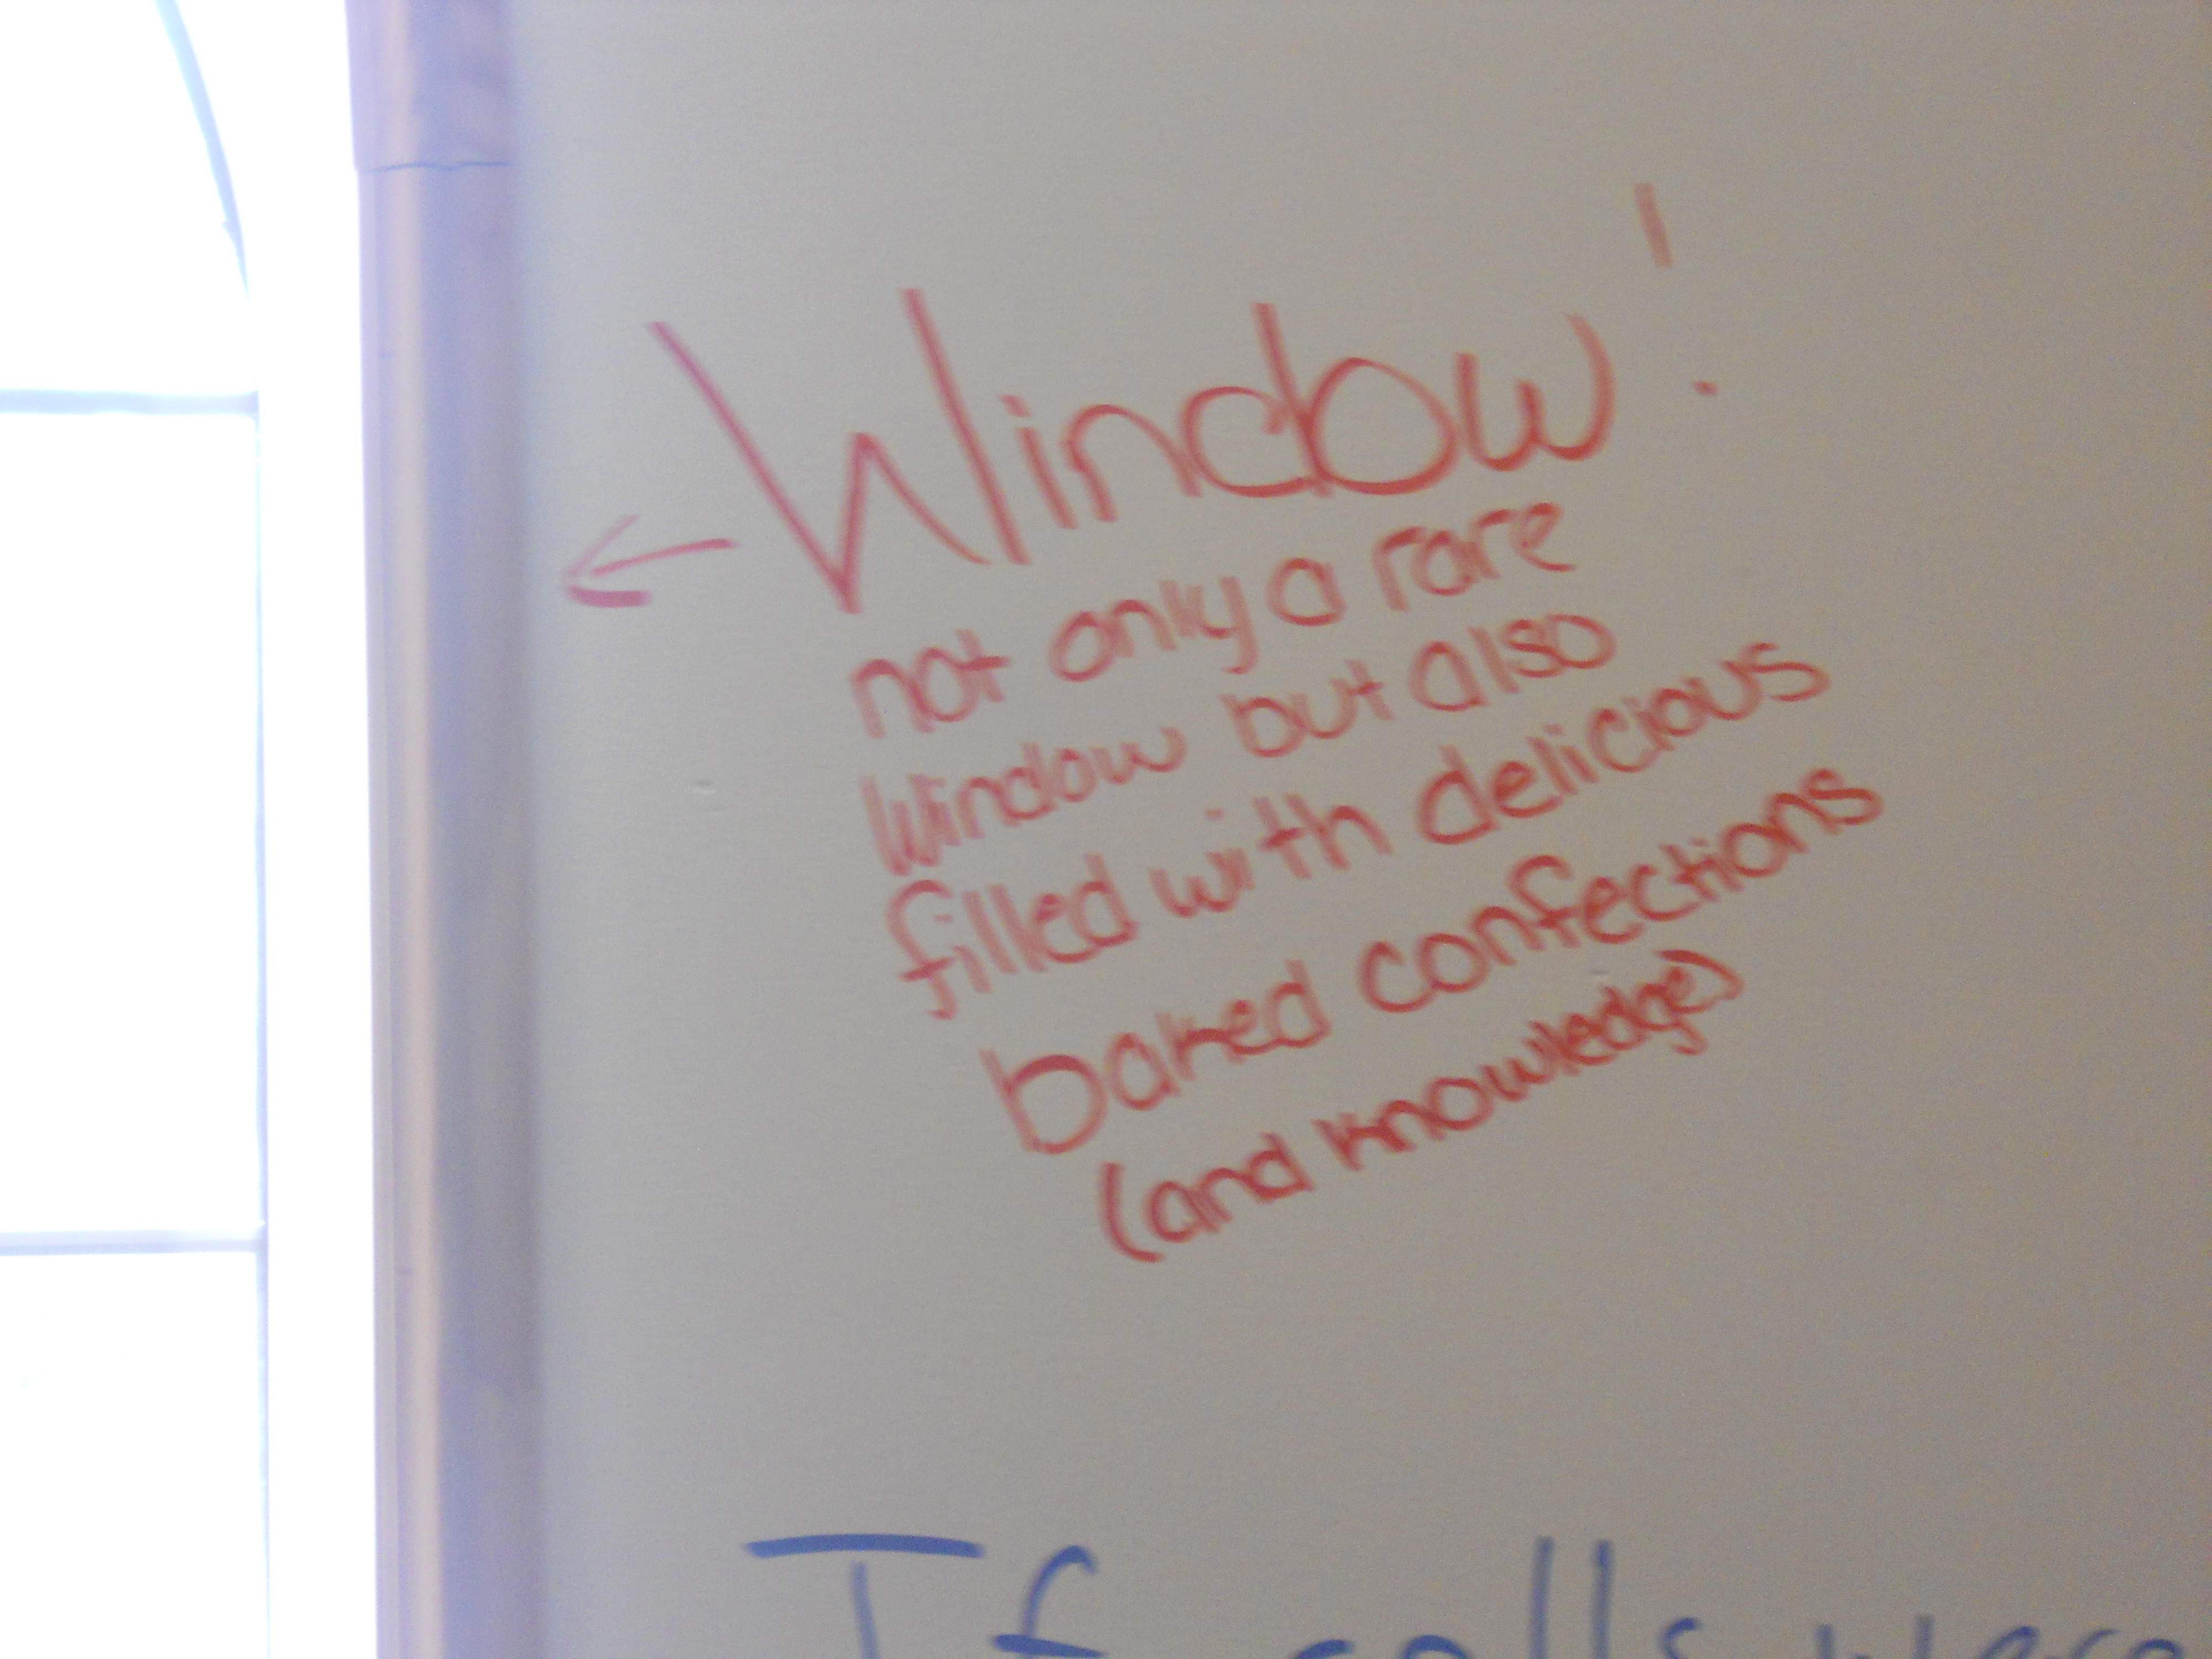 Window!
not only a rare
Window but also
filled with delicious
baked confections
(and knowledge)
If cells were